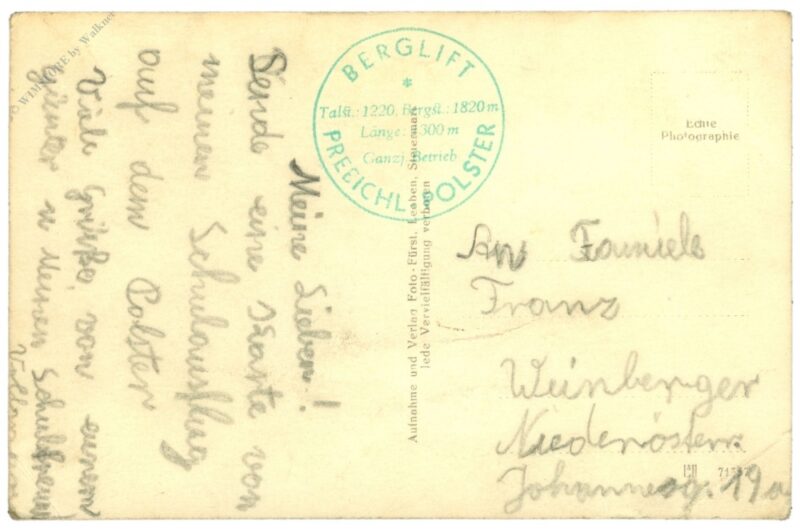 © WIMMORE by Walkner
Meine Lieben!
Sende eine Karte von
meinen Schulausflug
auf dem Polster
Viele Grüße von eurem
Günter u Meinen
BERGLIFT
*
Talst.: 1220, Bergst.: 1820 m
Länge: 1300 m
Ganzj. Betrieb
PREBICHL-POLSTER
Aufnahme und Verlag Foto-Fürst, Leoben, Steiermark
Jede Vervielfältigung verboten
Echte
Photographie
An Familie
Franz
Weinberger
Niederösterr.
Johannesg. 19a